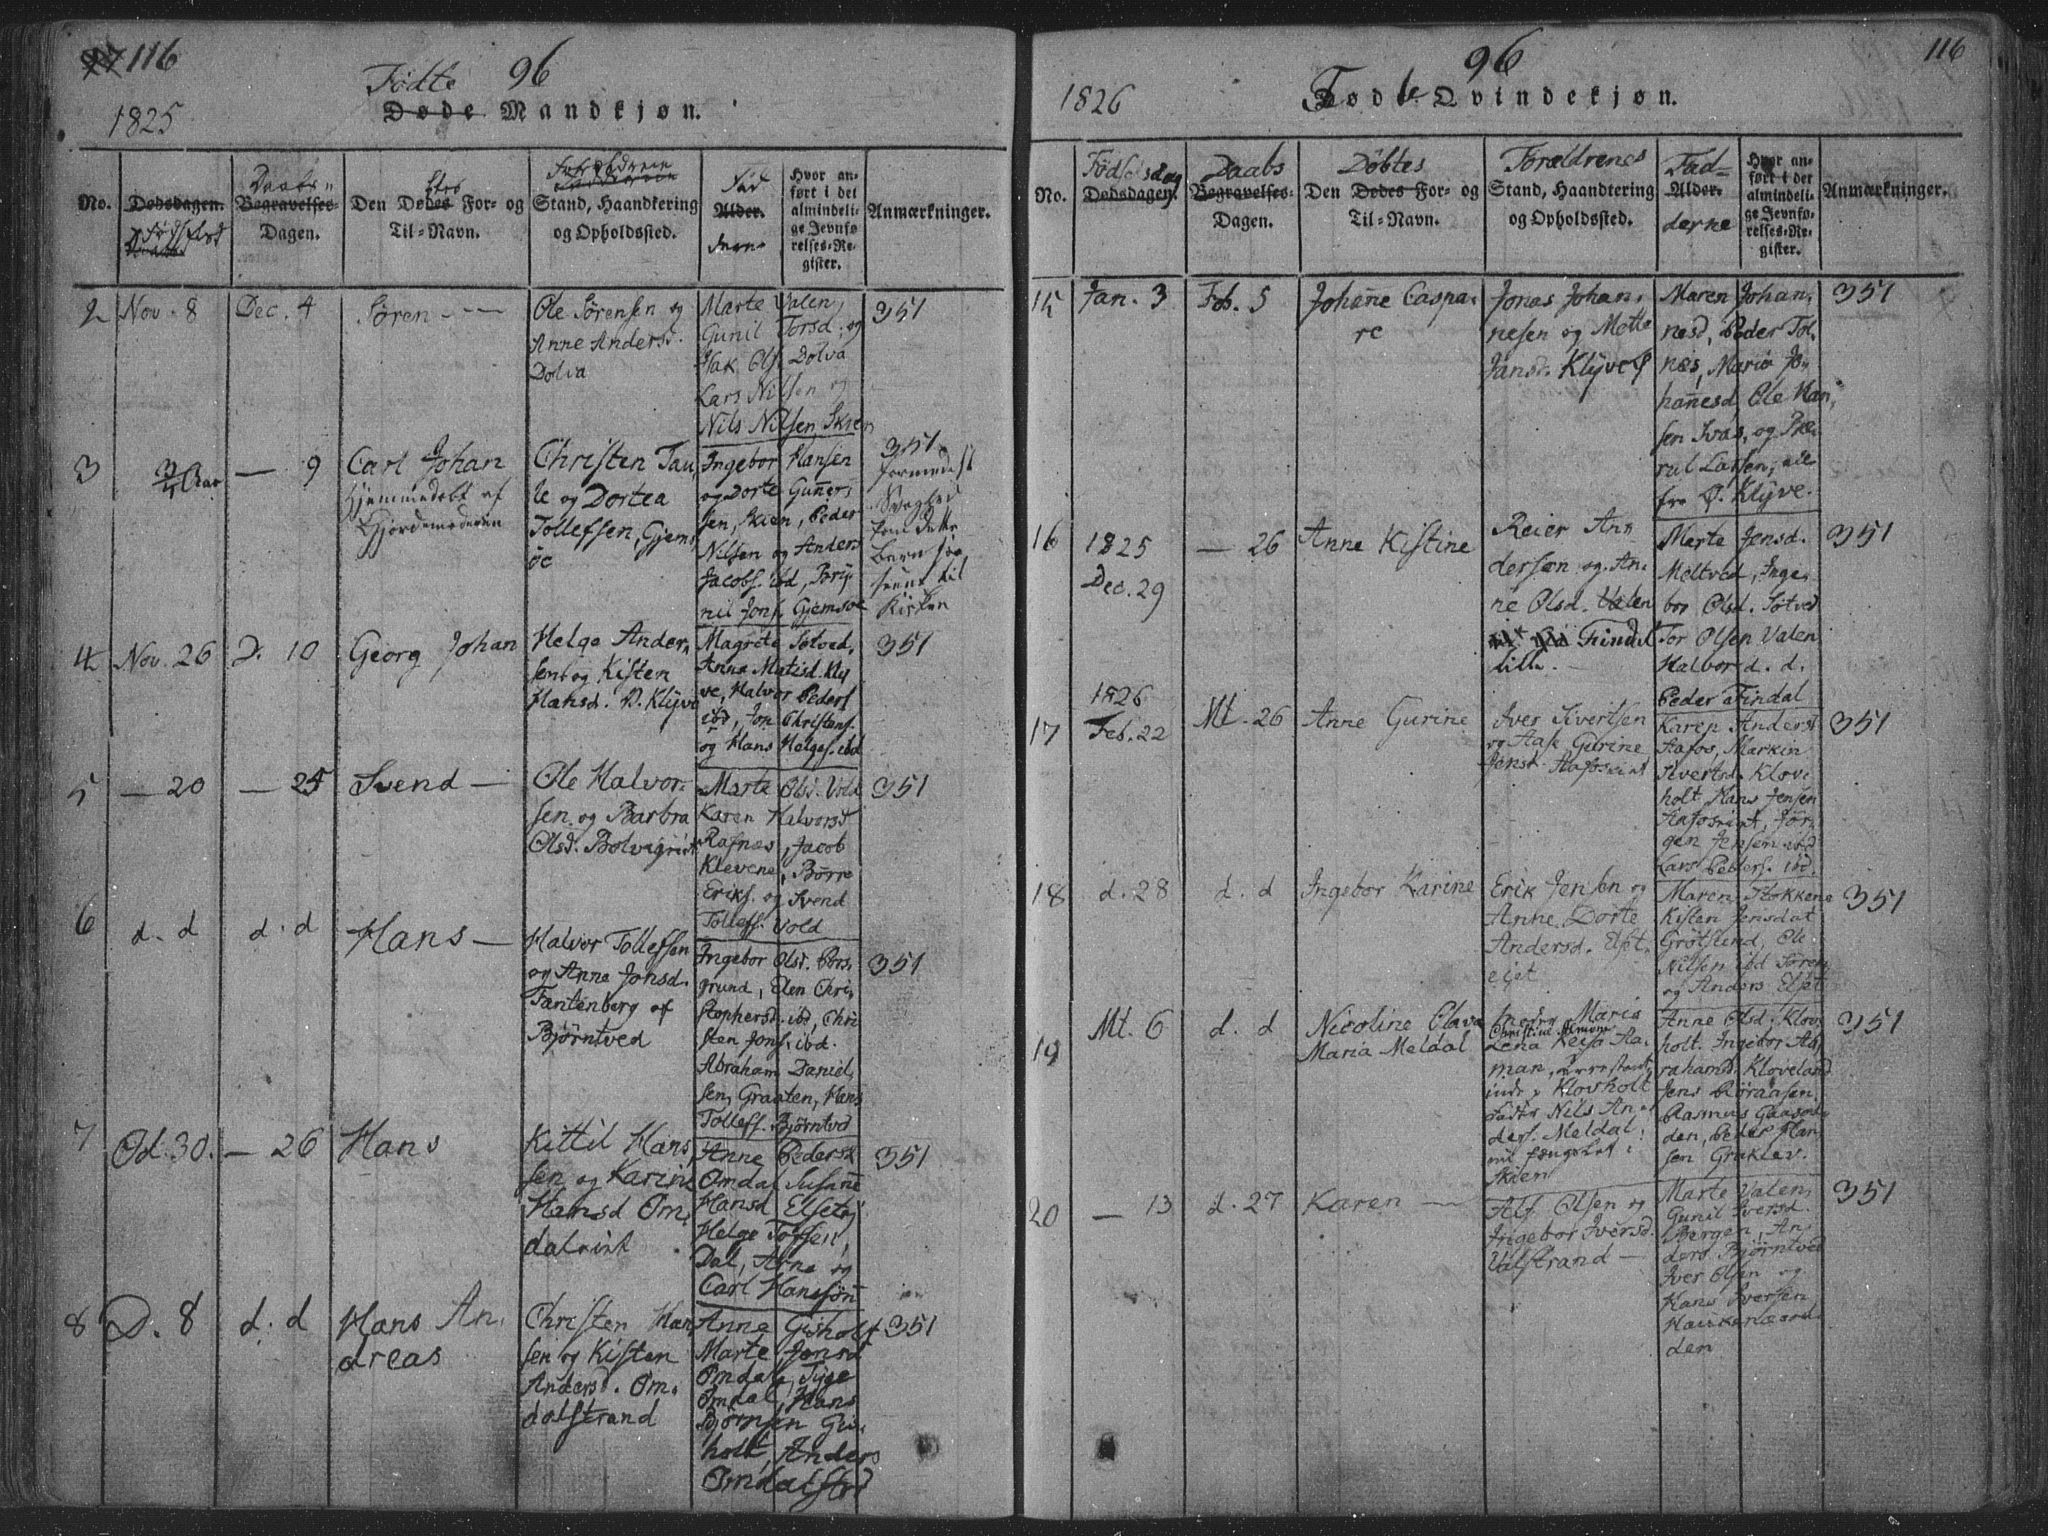 116
96
Fødte
Døde Mandkjøn.
1825
No.
Dødsdagen.
Daabs-
Begravelses-
Dagen.
Den Dødes For- og
Til-Navn.
Stand, Haandtering
og Opholdssted.
Alder.
Hvor an-
ført i det
almindeli-
ge Jevnfø-
relses-Re-
gister.
Anmærkninger.
2 Nov. 8 Dec. 4 Sören
Ole Sörensen og
Anne Andersd.
Dolva
Marte Valen,
Gunil Torsd. og
Hak. Ols. Dolva
Lars Nilsen og
Nils Nilsen Skien
351
3 — 9
Carl Johan
Hjemmedøbt af
Gjordemoderen
Christen Tau,
le og Dortea
Tollefsen, Gjems
öe
Ingebor Hansen
og Dorte Guners
sen, Skien, Peder
Nilsen og Anders
Jacobs. ibd, Bry,
nil Jons. Gjemsöe
351
formedelst
Svaghed
Kirken
4 Nov. 26 D. 10 Georg Johan
Helge Ander,
sen og Kisten
Hansd. N. Klyve
Magrete Sötved,
Anne Matisd. Kly
ve, Halvor Peders
ibd, Jon Christens.
og Hans Helges. ibd
351
5 — 20 — 25 Svend —
Ole Halvor-
sen og Barbra
Olsd. Bolvigeiet
Marte Olsd. Vold
Karen Halvorsd
Rafnæs, Jacob
Klevene, Börre
Eriks. og Svend
Tollefs. Vold
351
6 d. d d. d Hans —
Halvor Tollefsen
og Anne Jonsd.
Fantenberg af
Björntved
Ingebor Olsd. Pors,
grund, Elen Chri,
stophersd. ibd, Chri
sten Jons. ibd.
Abraham Daniel,
sen, Graaten, Hans
Tollefs. Björntvd
351
7 Od. 30. — 26 Hans
Kittil Hans,
sen og Karine
Hansd Om,
daleiet
Anne Pedersd
Omdal Susanne
Hansd Elset,
Helge Torsen
Dal, Arne og
Carl Hanssönn
351
8 D. 8 d. d Hans An,
dreas
Christen Han,
sen og Kisten
Andersd. Om,
dalstrand
Anne Gisholt
Marte Jensd
Omdal, Tyge
Omdal, Hans
Björnsen Gis,
holt, Anders
Omdalstrd
351
116
96
1826
Fødte Qvindekjøn.
No.
Fødselsdag
Dødsdagen.
Daabs
Begravelses-
Dagen.
Døbtes
Den Dødes For- og
Til-Navn.
Forældrenes
Stand, Haandtering
og Opholdssted.
Fad-
Alder.
derne
Hvor an-
ført i det
almindeli-
ge Jevnfø-
relses-Re-
gister.
Anmærkninger.
15 Jan. 3 Feb. 5 Johane Caspa,
re
Jonas Johan,
nesen og Mette
Jansd. Klyve
Maren Johan,
nesd, Peder Tol,
næs, Marie Jo-
hanesd, Ole Han,
sen Svas, og Pæ,
rul Larsen, alle
fra Ö. Klyve.
351
16 1825
Dec. 29
— 26 Anne Kistine
Reier An,
dersøn og An,
ne Olsd. Valen
Findal
lille. —
Marte Jensd.
Meltved, Inge,
bor Olsd. Sötved
Tor Olsen Valen
Halbor d. d.
Peder Findal
351
17 1826
Feb. 22
Mt. 26 Anne Gurine
Iver Sivertsen
og Aase Gurine
Jensd. Aafoseiet
Karen Anders
Aafos, Markin
Sivertsd. Klov,
holt, Hans Jensen
Aafoseiet, Jör,
gen Jensen ibd
Lars Peders. ibd.
351
18 d. 28 d. d Ingebor Karine
Erik Jensen og
Anne Dorte
Andersd. Elst,
ejet
Maren Stokkene
Kisten Jensdat
Grötsund, Ole
Nilsen ibd Sören
og Anders Elset
351
19 Mt. 6 d. d Nicoline Olava
Maria Meldal
Moder Maria
Christine
Lena Reisa Aa,
man, arrestant,
inde, Klovholt
Fader Nils An,
ders. Meldal,
nu fængslet i
Skien
Anne Olsd. Klov,
holt. Ingebor Ab,
rahamsd. Kloveland
Jens Böraasen
Rasmus Gaasen,
den, Peder Han
sen Graklev.
351
20 — 13 d. 27 Karen —
Alf Olsen og
Ingebor Iversd.
Valstrand —
Marte Valen,
Gunil Iversd.
Bergen, An,
ders Björntved
Iver Olsen og
Hans Iversen
Haukenæsod,
den
351